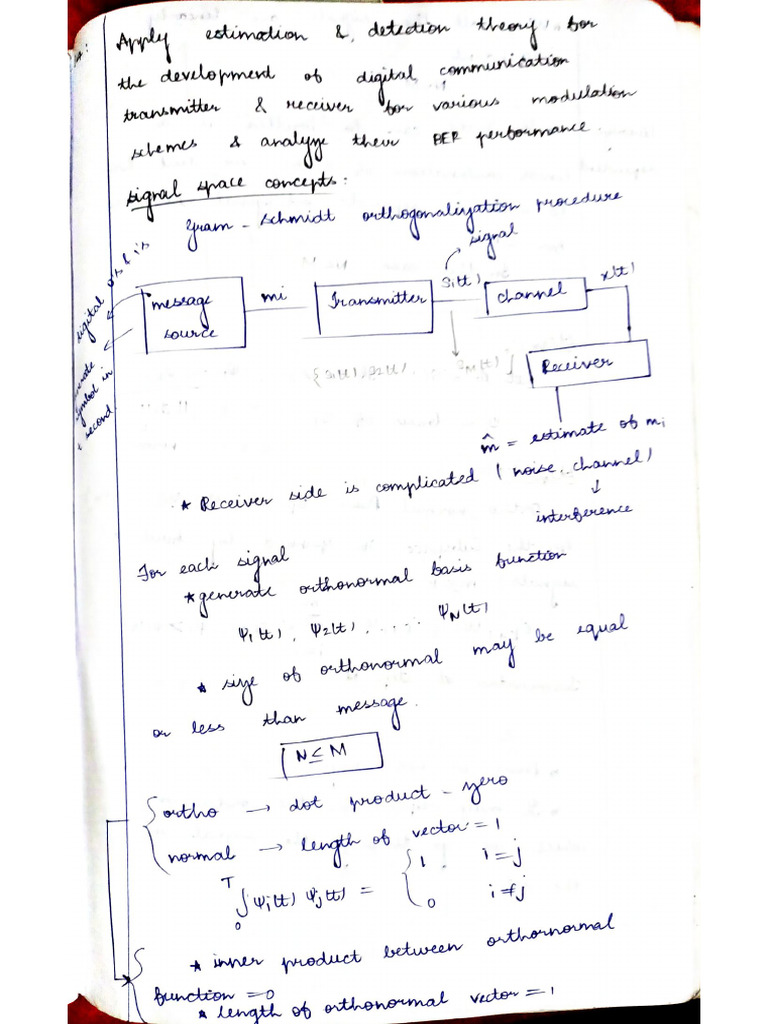 Apply estimation & detection theory, for
the development of digital communication
transmitter & receiver for various modulation
schemes & analyze their BER performance.
signal space concepts:
Gram-Schmidt orthogonalization procedure
signal
digital 0's & 1's
message
source
mi
Transmitter
Si(t)
channel
x(t)
symbol in
1 second
Receiver
m̂ = estimate of mi
* Receiver side is complicated (noise, channel)
↓
interference
For each signal
* generate orthonormal basis function
Ψ1(t), Ψ2(t), ..... ΨN(t)
* size of orthonormal may be equal
or less than message.
N ≤ M
ortho → dot product - zero
normal → length of vector = 1
T
∫ Ψi(t) Ψj(t) = { 1 i = j
0
0 i ≠ j
* inner product between orthornormal
function = 0
* length of orthonormal vector = 1